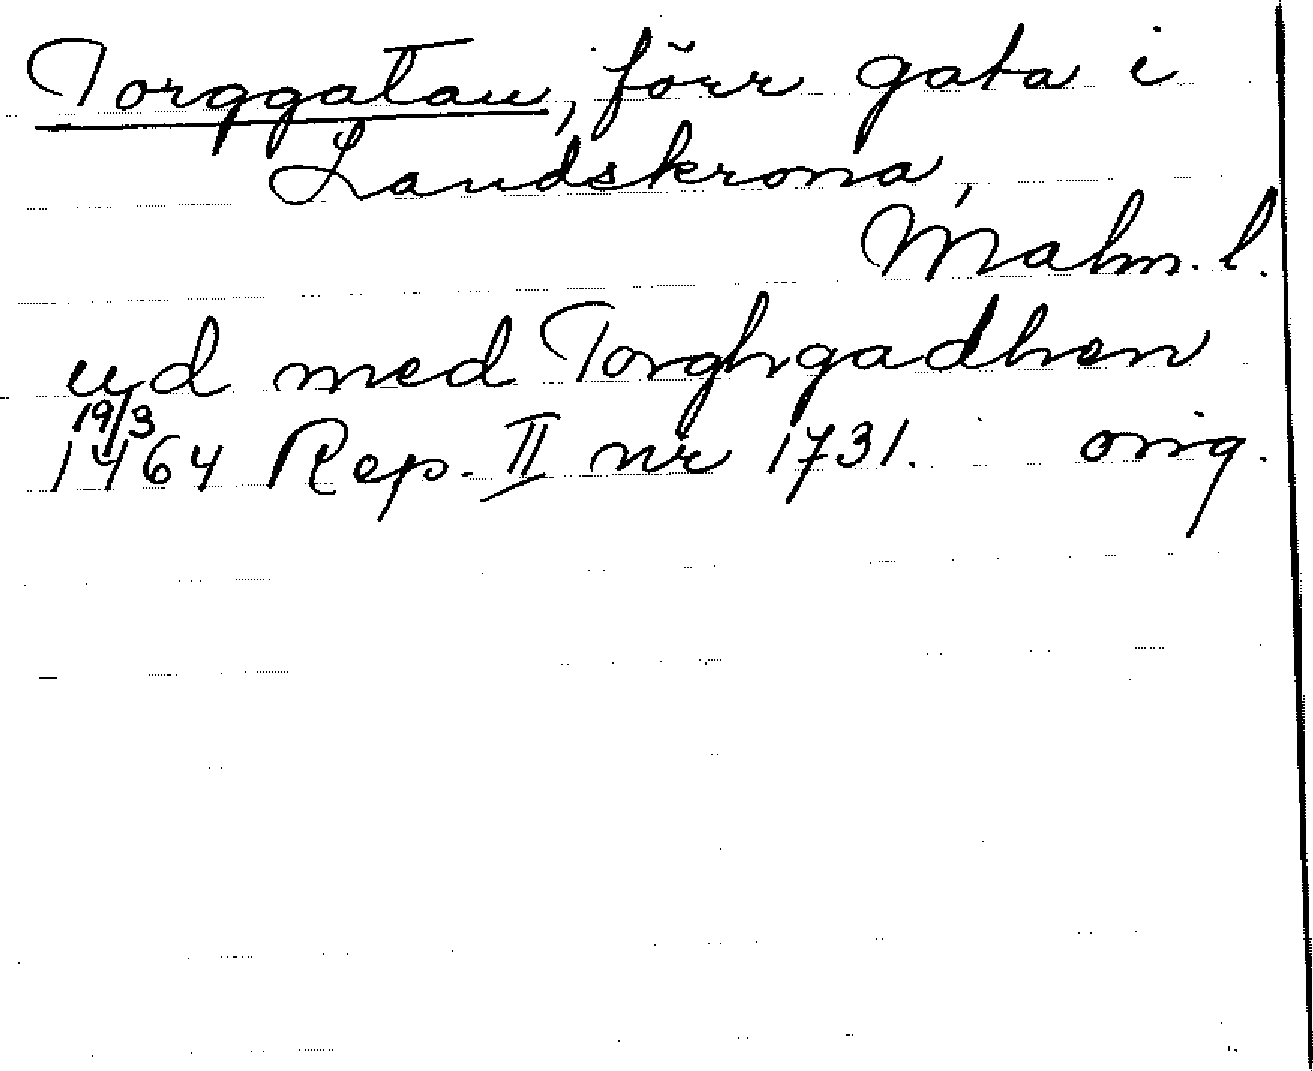 Torggatan, förr gata i
Landskrona,
Malm. l.
ud med Torghgadhen
19/3
1464 Rep. II nr 1731. orig.